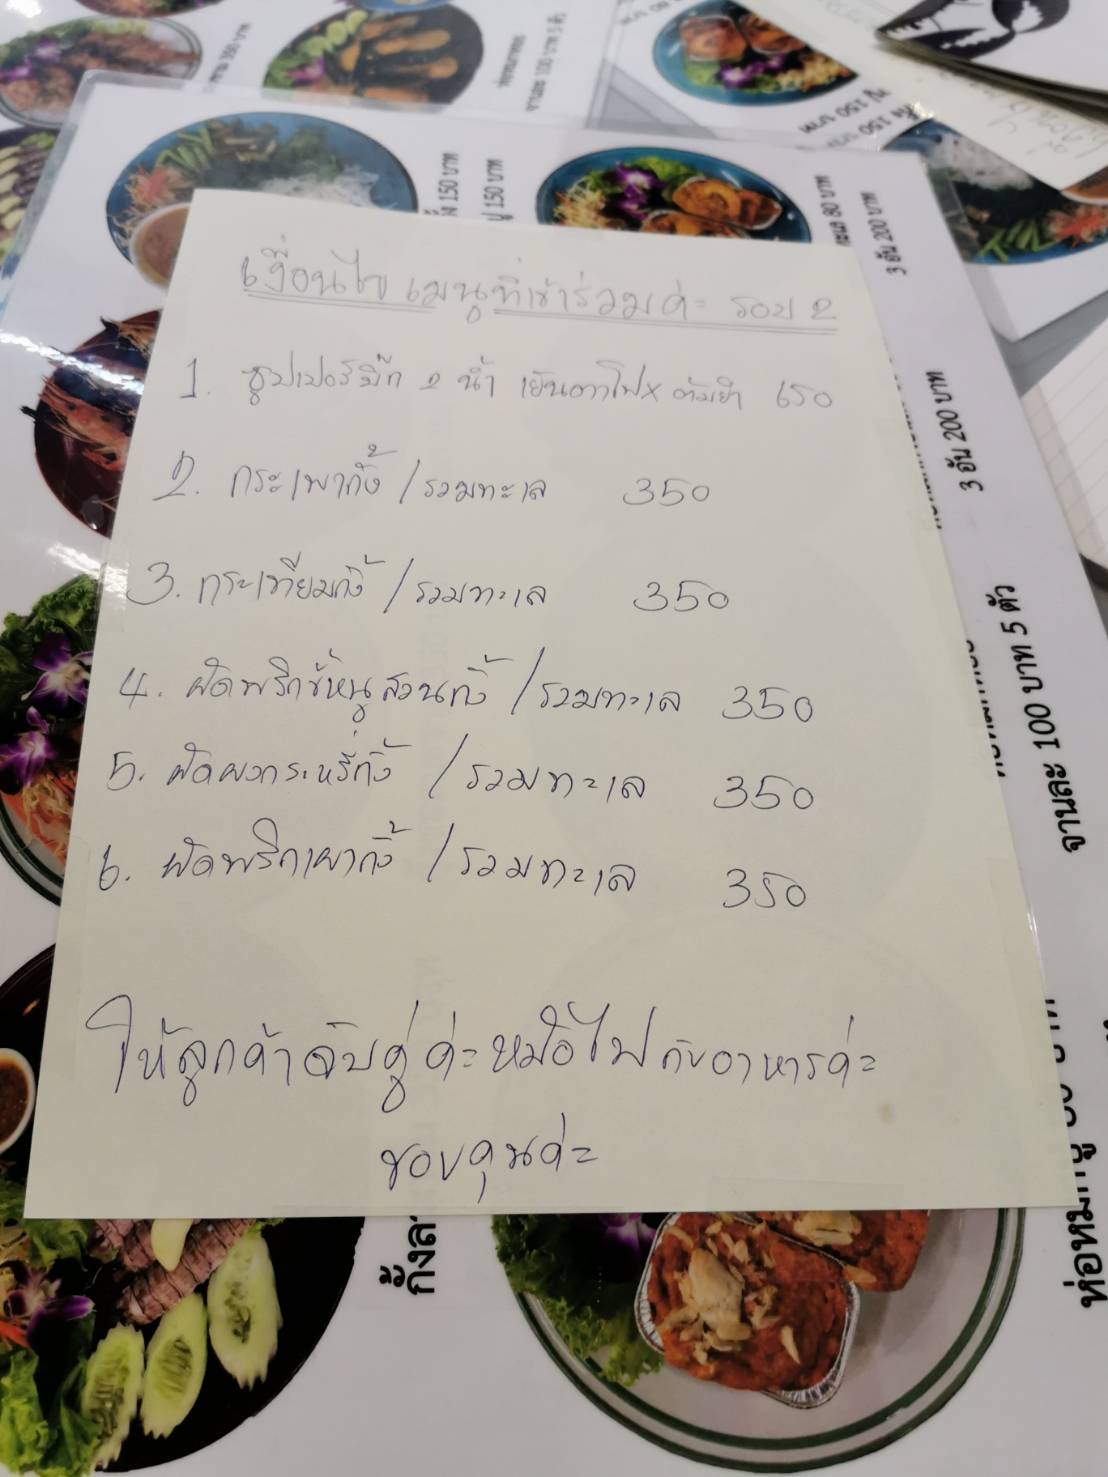 เงื่อนไข เมนูที่เข้าร่วมค่ะ รอบ 2
1. ซุปเปอร์บิ๊ก 2 น้ำ เย็นตาโฟ x ต้มยำ 650
2. กระเพากุ้ง / รวมทะเล 350
3. กระเทียมกุ้ง / รวมทะเล 350
4. ผัดพริกขี้หนูสวนกุ้ง / รวมทะเล 350
5. ผัดผงกระหรี่กุ้ง / รวมทะเล 350
6. ผัดพริกเผากุ้ง / รวมทะเล 350
ให้ลูกค้าจับคู่ ค่ะ หม้อไฟ กับอาหารค่ะ
ขอบคุนค่ะ
150 บาท
150 บาท
80 บาท
3 อัน 200 บาท
3 อัน 200 บาท
จานละ 100 บาท 5 ตัว